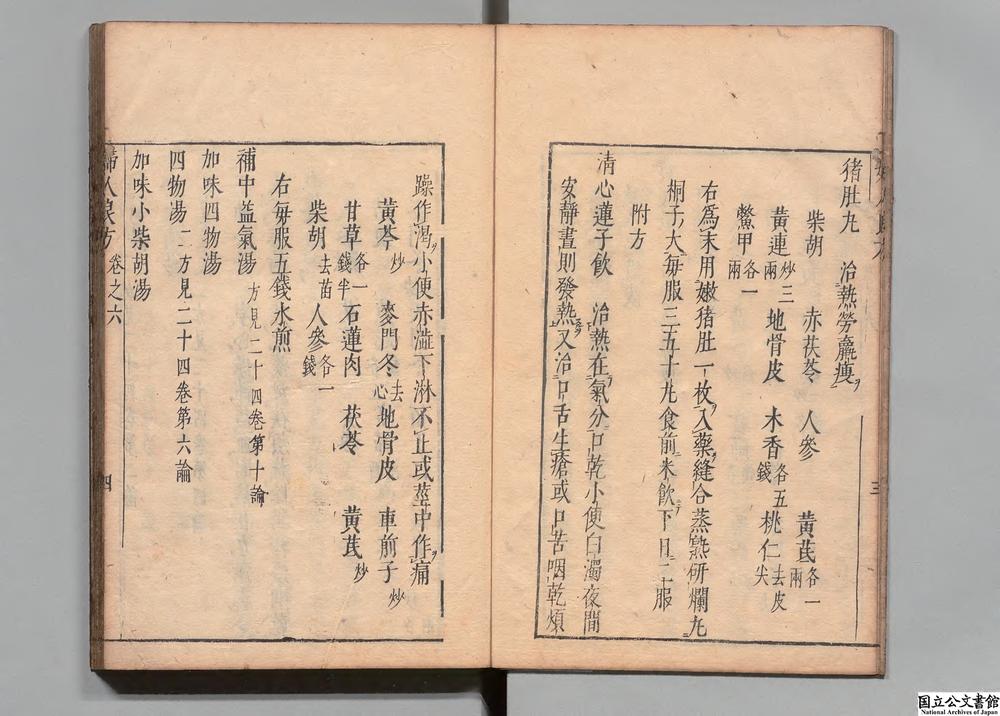 猪肚丸　治熱勞羸瘦
柴胡　赤茯苓　人參　黃芪各一兩
黃連炒三兩　地骨皮　木香各五錢　桃仁去皮尖
鱉甲各一兩
右爲末用嫩猪肚一枚入藥縫合蒸熟研爛丸
桐子大每服三五十丸食前米飲下日二十服
附方
清心蓮子飲　治熱在氣分口乾小便白濁夜間
安靜晝則發熱又治口舌生瘡或口苦咽乾煩
三
躁作渴小便赤澁下淋不止或莖中作痛
黃芩炒　麥門冬去心　地骨皮　車前子炒
甘草各一錢半　石蓮肉　茯苓　黃芪炒
柴胡去苗　人參各一錢
右每服五錢水煎
補中益氣湯　方見二十四卷第十論
加味四物湯
四物湯　二方見二十四卷第六論
加味小柴胡湯
婦人良方　卷之六　四
国立公文書館
National Archives of Japan